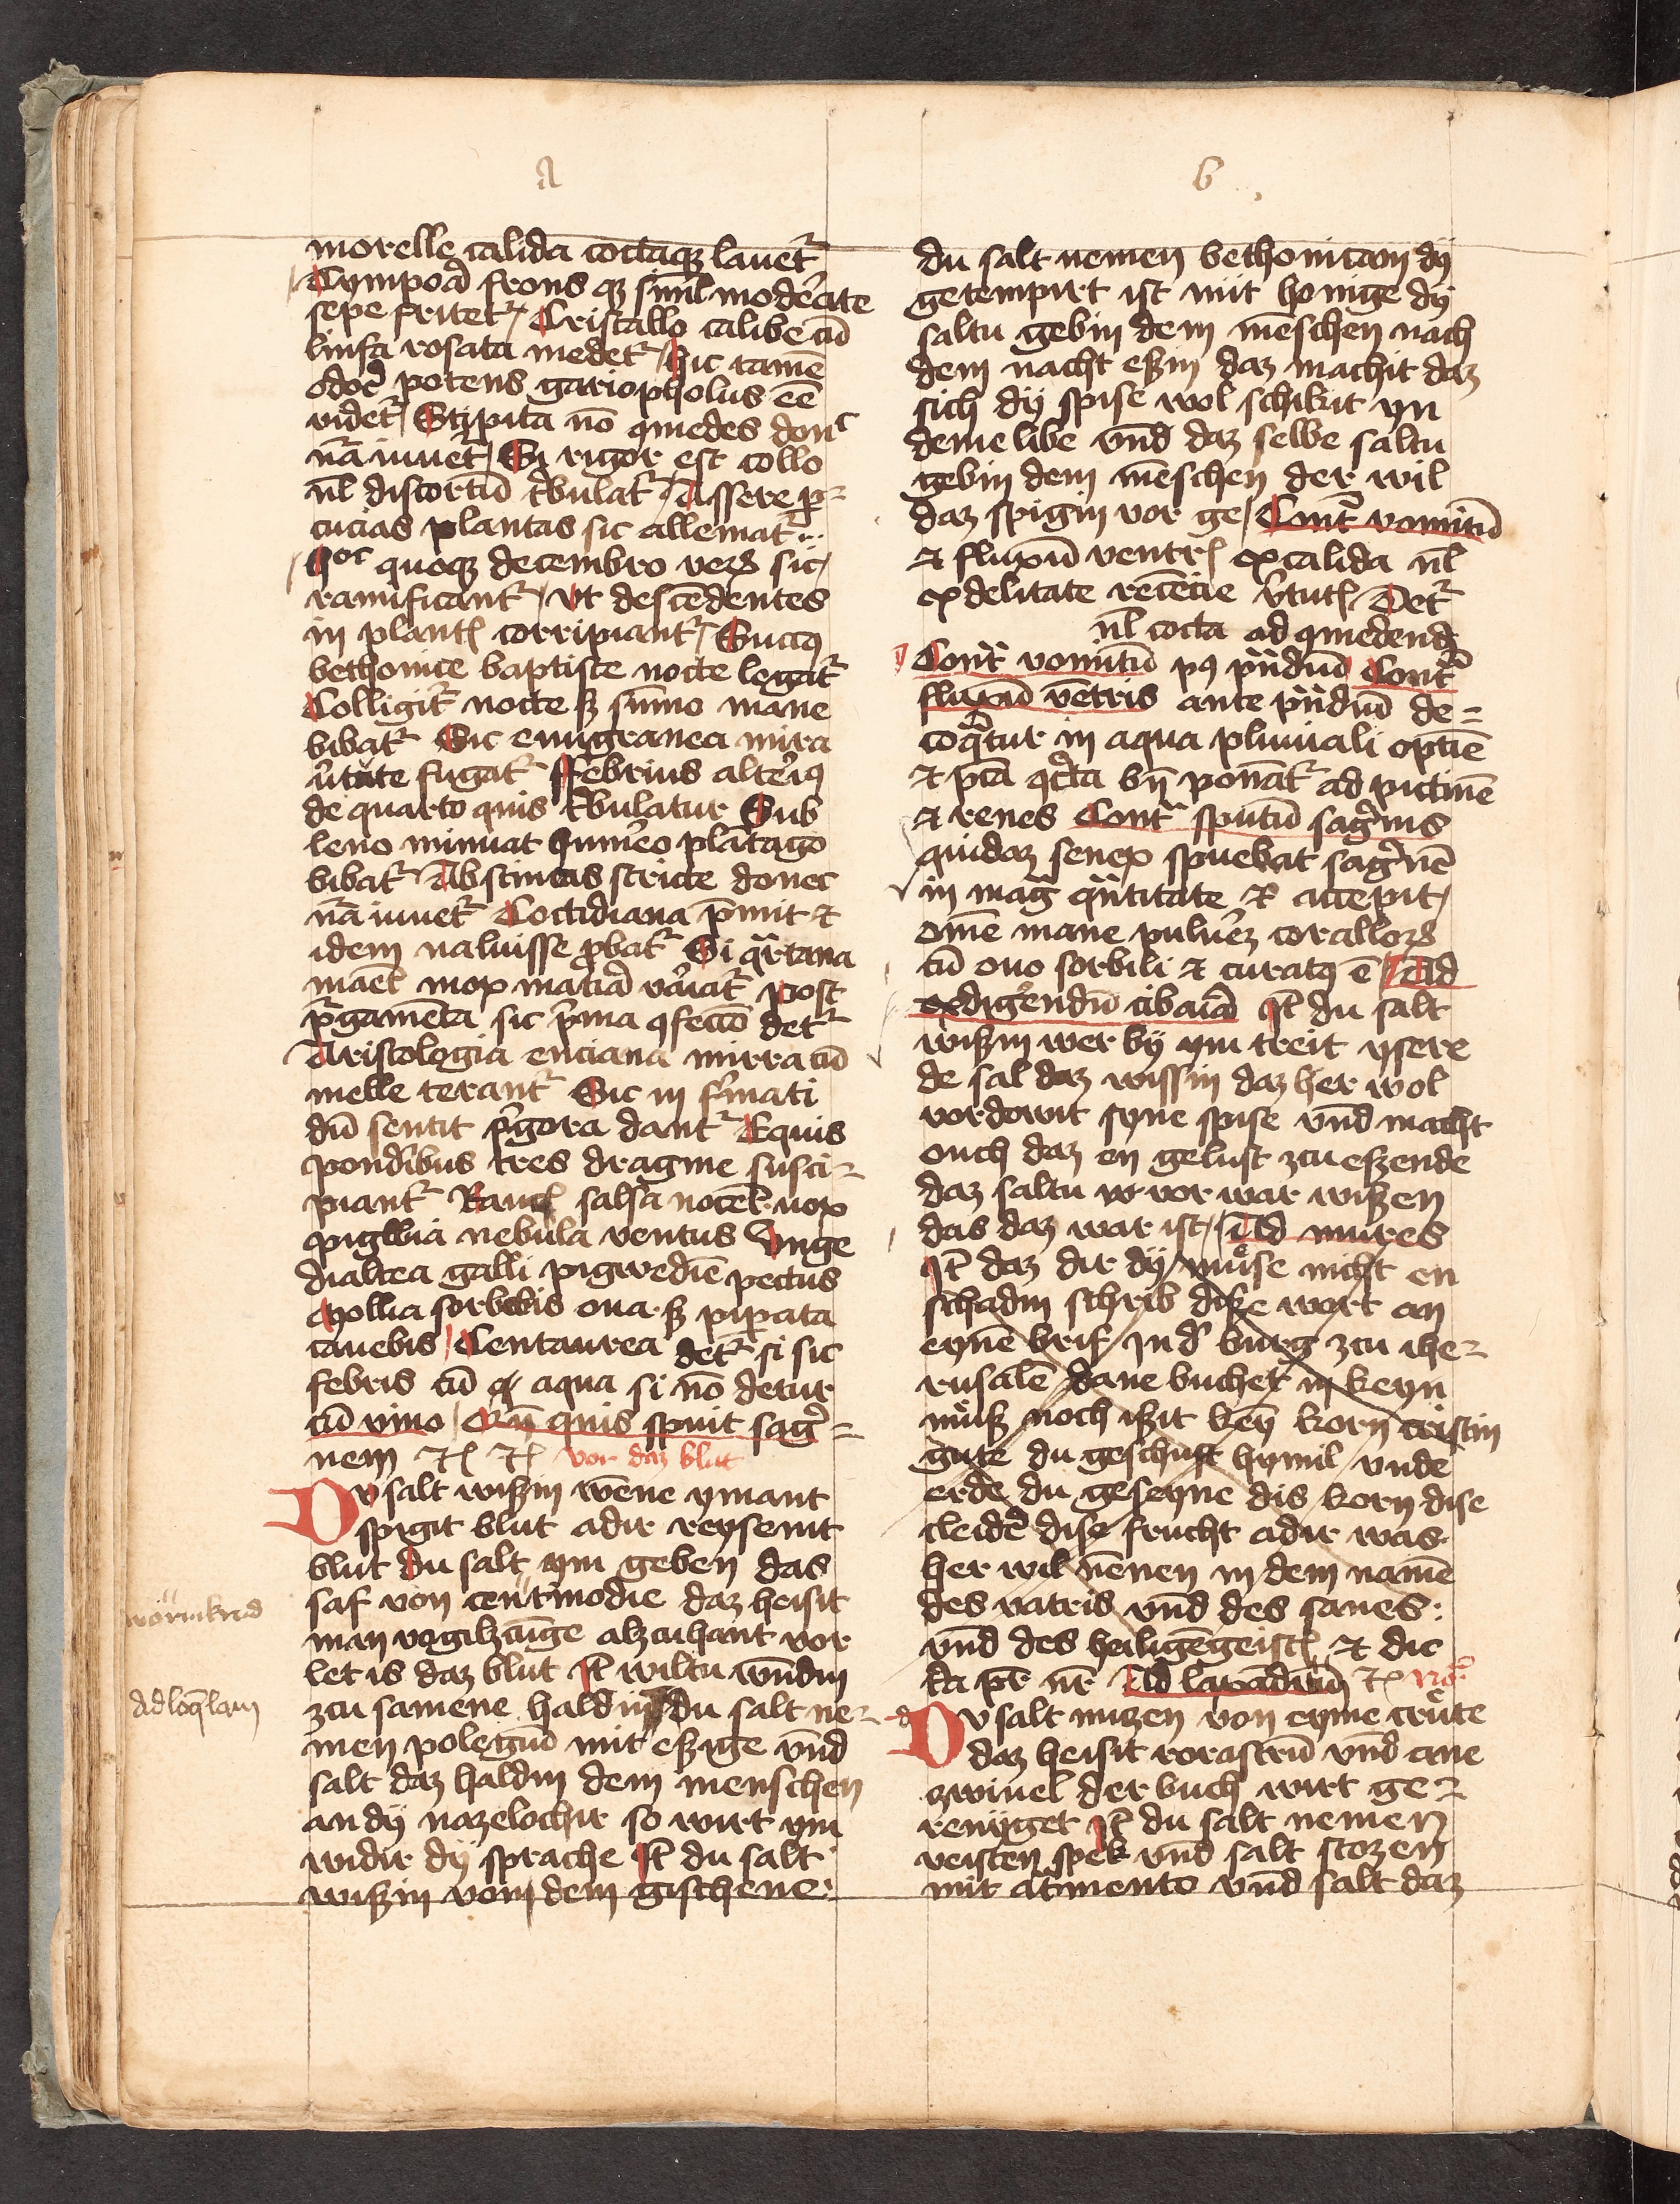 a
morelle calida coctaqꝫ lauet᷑
Tympoꝛa frons qꝫ simł modeꝛate
sepe fritet᷑ Cristallo calibe cū
linfa rosata medet᷑ hic tamē
potens gariopholus eē
videt᷑ Stipita nō qmedes donᶜ
nā iuuet᷑ Si rigor est collo
nł discortū t̓bulat᷑ Assere p̱
cucias plantas sic alleuiat᷑
hoc quoqꝫ decembro sic
ramificant᷑ vt descēdentes
in plantꝭ corripiant᷑ Succꝯ
bethonice baptiste nocte legat᷑
Colligit᷑ nocte sꝫ sūmo mane
bibat᷑ Sic emigranea mira
v̓tute fugat᷑ ffebrius alteꝛiꝯ
de quarto quis t̓bulatur Sub
leno minuat humeꝛo plātago
bibat᷑ Abstineas stricte donec
nā iuuet᷑ Coctidiana p̱mit ⁊
idem ualuisse ꝓbat᷑ Si qr̄tana
mox mat̓iā v̓iat᷑ post
p̓gamēta sic p̓ma ꝯfectō det᷑
Aristologia enciana mirra cū
melle terant᷑ Sic in
dū sentit fͥgora dant᷑ Equis
pondībus tres dragme susci-
piant᷑ Raucꝭ salsa nocēt nox
nebula ventus Vnge
dialtea galli pigwedīe pectus
Mollia sorbebis oua sꝫ pip̱ata
cauebis Centaurea det᷑ si sic
febris cū aqua si nō detur
cū vino Cū quis spuit sag̓=
nem ⁊ꝭ ⁊ꝭ vor daz blut
Dv salt wißin wēne ymant
spigit blut adir reysemt
blut du salt ym geben das
saf von centinodie daz heisit
man vogilzūge alzcuhant vor
let is daz blut Jt̄ wiltu wūdin
zcu samene haldin du salt ne-
men polegiū mit eßige vnd
salt daz haldin dem menschen
an dy nazelochir so wirt ym
widir dy sprache Jt̄ du salt
wißin vom dem gischene
Ad loq̄lam
b
du salt nemen bethonicam dy
getempirt ist mit honige dy
saltu gebin dem mēschen nach
dem nacht eßin daz machit daz
sich dy spise wol schikit yn
deme libe vnd daz selbe saltu
gebin dem mēschen der wil
daz spigin vor ge Cont̓ vomitū
⁊ fluxū ventrꝭ ex calida nł
ex delitate v̓tutꝭ Det᷑
nł cocta ad qmedendꝫ
Cont̓ vomitū pꝯ pn̄diū Cont̓
fluxū vētris ante pn̄diū de=
coq̄tur in aqua pluuiali optīe
⁊ pꝰtā bn̄ ponat᷑ ad pictinē
⁊ renes Cont̓ sputū sag̓nis
quidaz senex spuebat sag̓nē
in mag̓ qn̄titate ⁊ accepit
omē mane pulueꝛꝫ corallorꝫ
cū ouo sorbili ⁊ curatꝯ ē Ad
exdigeꝛendū cibaꝛia Jt̄ du salt
wißin wer by ym treit ysere
de sal daz wissin daz her wol
vordowit syne spise vnd macht
ouch daz en gelust zcu eßende
daz saltu vor war wißen
das daz war ist Ad mures
Jt̄ daz dir dy muͦse nicht en
schadin schrib diße wort an
eynē brif Jn d̓ burg zcu ihe-
rusalē dane buchet keyn
muͦß noch ißit key̅ korn cristin
gute du geschuft hymil vnde
erde du geseyne dis korn dise
cleid̓ dise frucht adir was
her wil nēnen in dem namē
des vatris vnd des sanes
vnd des heiligēgeistꝭ ⁊ dic
ta pr̄ nr̄ Ad laxādum ⁊ꝭ
Dv salt nuzen von eyme cruͦte
daz heisit rorastrū vnd ane
zwiuel der buch wirt ge-
reniget Jt̄ du salt nemen
veisten spek vnd salt stozen
mit at̓mento vnd salt daz